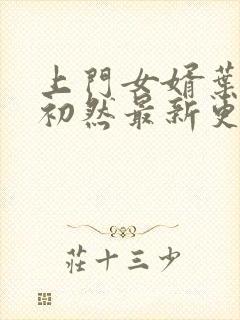 上門女婿葉
初然最新更
莊十三少